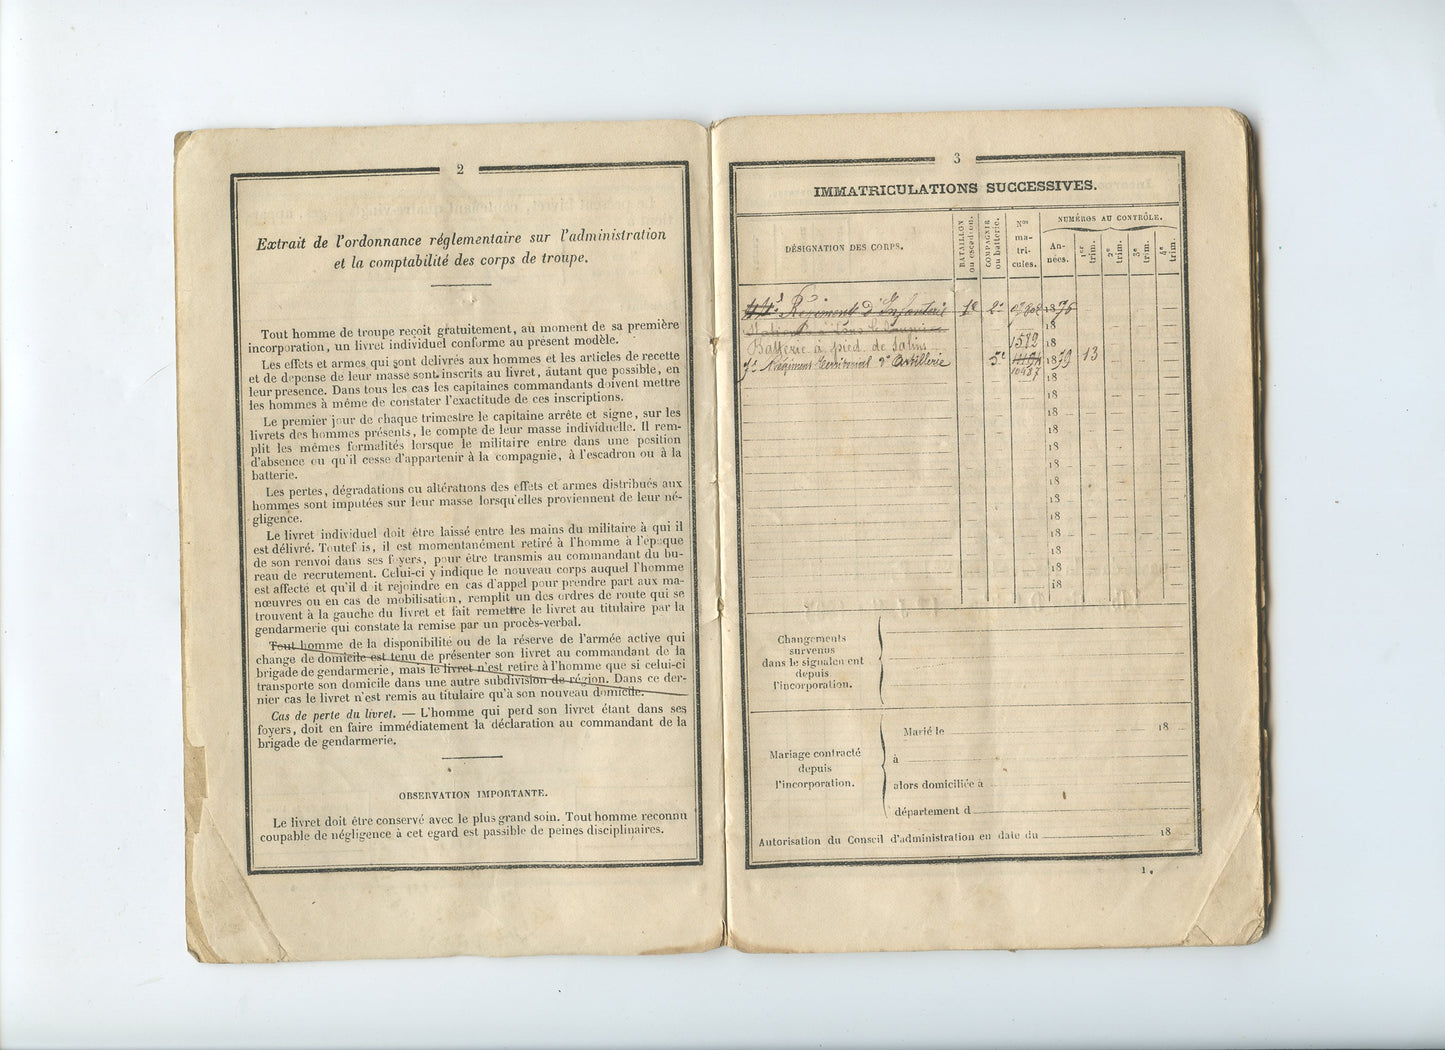 2
Extrait de l'ordonnance réglementaire sur l'administration
et la comptabilité des corps de troupe.
Tout homme de troupe reçoit gratuitement, au moment de sa première
incorporation, un livret individuel conforme au présent modèle.
Les effets et armes qui sont delivrés aux hommes et les articles de recette
et de dépense de leur masse sont inscrits au livret, autant que possible, en
leur présence. Dans tous les cas les capitaines commandants doivent mettre
les hommes à même de constater l'exactitude de ces inscriptions.
Le premier jour de chaque trimestre le capitaine arrête et signe, sur les
livrets des hommes présents, le compte de leur masse individuelle. Il rem-
plit les mêmes formalités lorsque le militaire entre dans une position
d'absence ou qu'il cesse d'appartenir à la compagnie, à l'escadron ou à la
batterie.
Les pertes, dégradations ou altérations des effets et armes distribués aux
hommes sont imputées sur leur masse lorsqu'elles proviennent de leur né-
gligence.
Le livret individuel doit être laissé entre les mains du militaire à qui il
est délivré. Toutef is, il est momentanément retiré à l'homme à l'époque
de son renvoi dans ses f yers, pour être transmis au commandant du bu-
reau de recrutement. Celui-ci y indique le nouveau corps auquel l'homme
est affecté et qu'il d it rejoindre en cas d'appel pour prendre part aux ma-
nœuvres ou en cas de mobilisation, remplit un des ordres de route qui se
trouvent à la gauche du livret et fait remettre le livret au titulaire par la
gendarmerie qui constate la remise par un procès-verbal.
Tout homme de la disponibilité ou de la réserve de l'armée active qui
change de domicile est tenu de présenter son livret au commandant de la
brigade de gendarmerie, mais le livret n'est retire à l'homme que si celui-ci
transporte son domicile dans une autre subdivision de région. Dans ce der-
nier cas le livret n'est remis au titulaire qu'à son nouveau domicile.
Cas de perte du livret. — L'homme qui perd son livret étant dans ses
foyers, doit en faire immédiatement la déclaration au commandant de la
brigade de gendarmerie.
OBSERVATION IMPORTANTE.
Le livret doit être conservé avec le plus grand soin. Tout homme reconnu
coupable de négligence à cet egard est passible de peines disciplinaires.
3
IMMATRICULATIONS SUCCESSIVES.
DÉSIGNATION DES CORPS.
BATAILLON ou escadron.
COMPAGNIE ou batterie.
Nos ma-tri-cules.
NUMÉROS AU CONTRÔLE.
An-nées.
1er trim.
2e trim.
3e trim.
4e trim.
Régiment d'Infanterie 1e 2e 1876
18
Batterie à pied de Salins 1512 18
7e Régiment territorial d'Artillerie 5e 10437 1879 13
18
18
18
18
18
18
18
18
18
18
18
18
18
Changements
survenus
dans le signalement
depuis
l'incorporation.
Mariage contracté
depuis
l'incorporation.
Marié le 18
à
alors domiciliée à
département d
Autorisation du Conseil d'administration en date du 18
1.